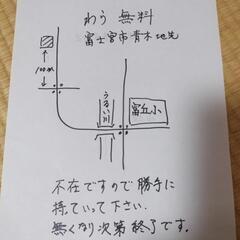 わら 無料
富士宮市青木地先
100m
うるい川
富丘小
不在ですので勝手に
持っていって下さい.
無くなり次第終了です。